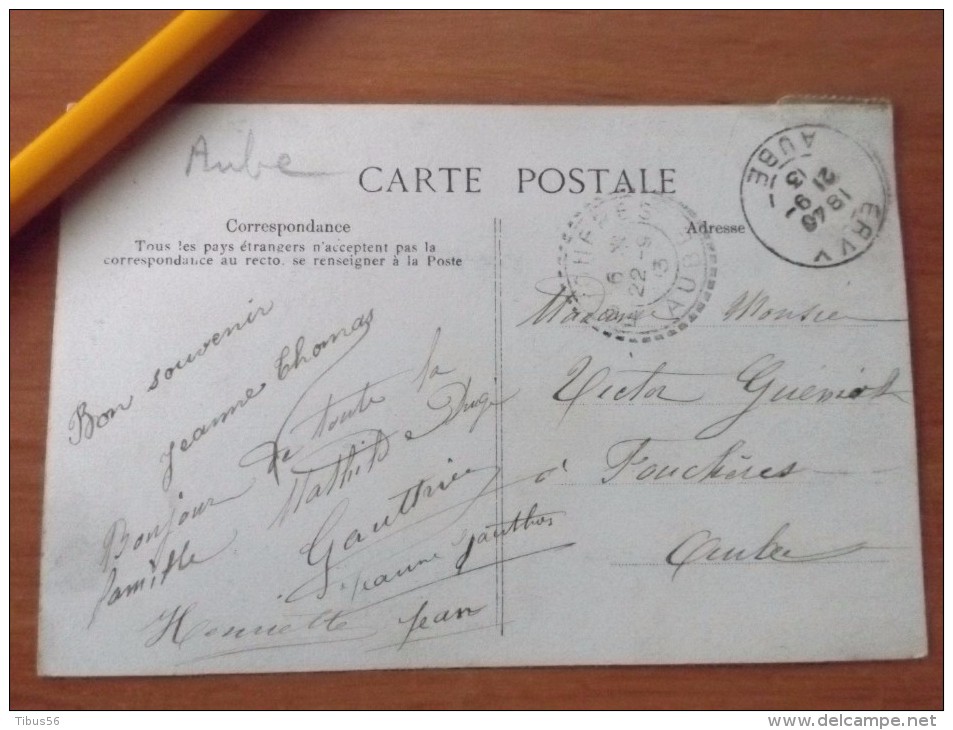 Aube
CARTE POSTALE
Correspondance
Tous les pays étrangers n'acceptent pas la
correspondance au recto, se renseigner à la Poste
Adresse
ERVY
AUBE
18 40
21 - 9
13
6
22 - 9
13
AUBE
Bon souvenir
Jeanne Thomas
Bonjour de toute la
famille Mathilde
Gauthier
Jeanne Gauthier
Henriette Jean
Madame Monsieur
Victor Gueniot
à Fouchères
Aube
Tibus56
www.delcampe.net